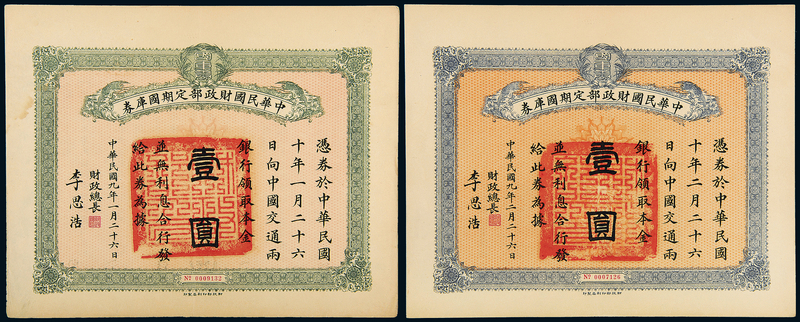 中華民國財政部定期國庫券
憑券於中華民國
十年一月二十六
日向中國交通兩
銀行領取本金
並無利息合行發
給此券為據
壹圓
中華民國九年一月二十六日
財政總長
李思浩
No 0009132
中華民國財政部定期國庫券
憑券於中華民國
十年二月二十六
日向中國交通兩
銀行領取本金
並無利息合行發
給此券為據
壹圓
中華民國九年二月二十六日
財政總長
李思浩
No 0007126